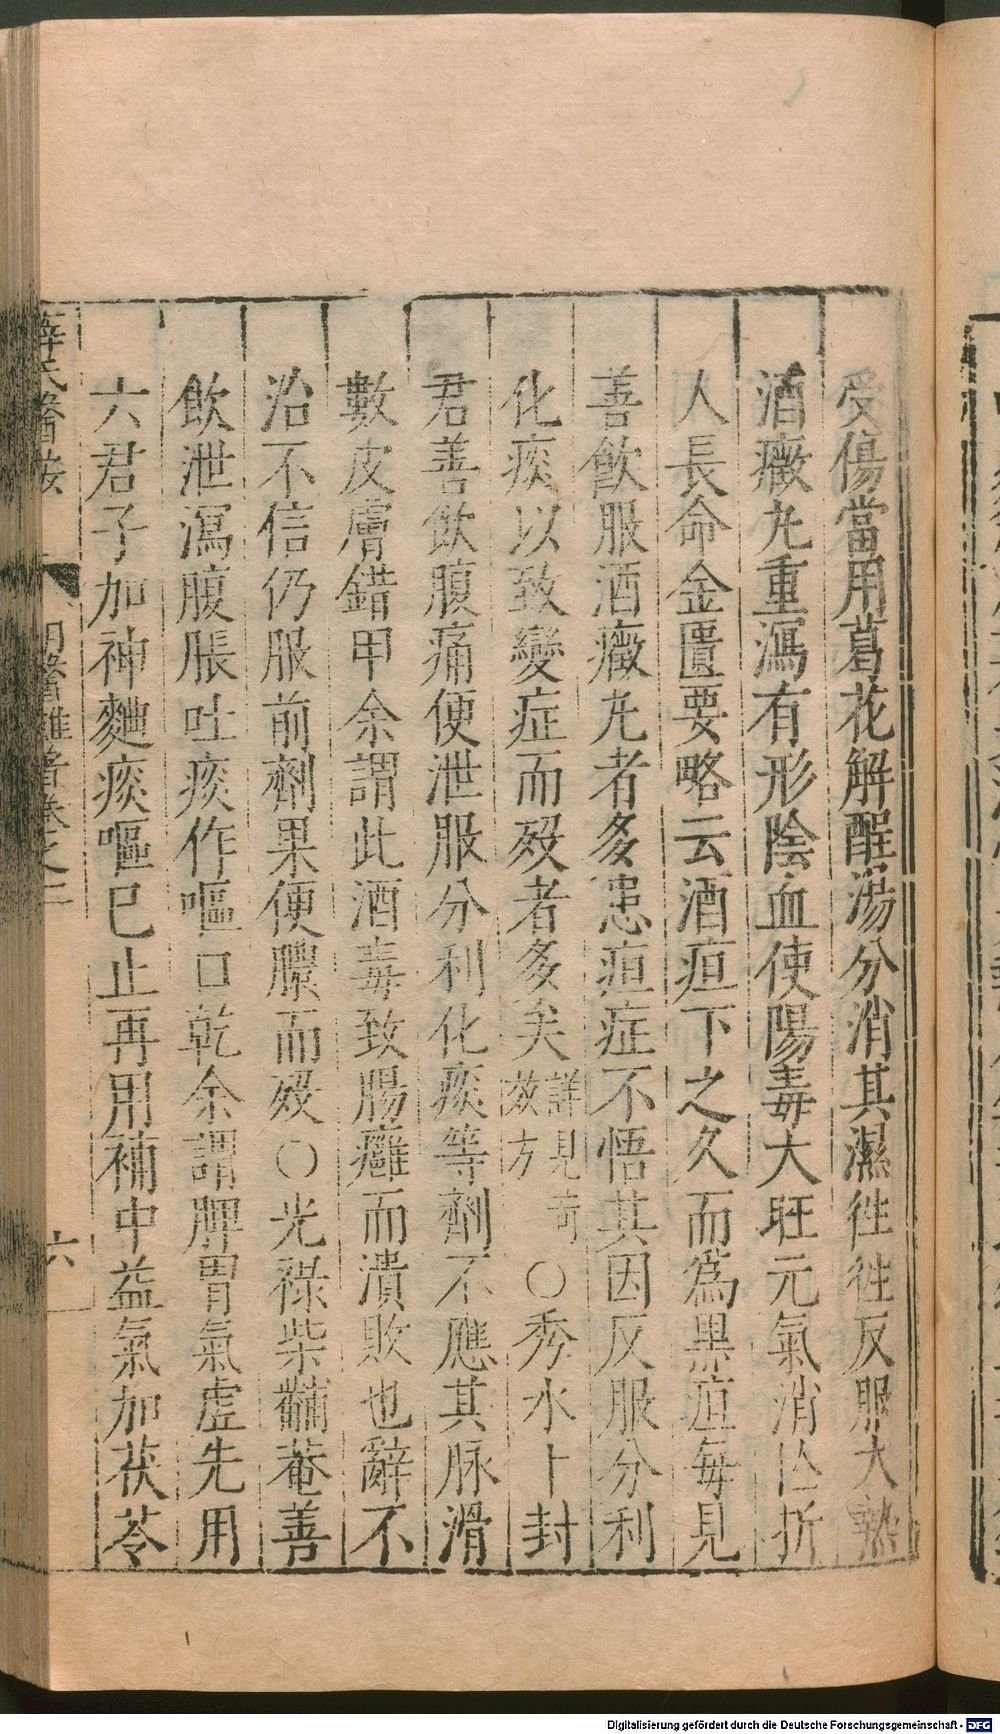 受傷當用葛花解酲湯分消其濕徃徃反服大熱
酒癥丸重瀉有形陰血使陽毒大旺元氣消亾折
人長命金匱要略云酒疸下之久而為黒疸毎見
善飲服酒癥丸者多患疸症不悟其因反服分利
化痰以致變症而歿者多矣詳見竒效方○秀水卜封
君善飲腹痛便泄服分利化痰等劑不應其脉滑
數皮膚錯甲余謂此酒毒致腸癰而潰敗也辭不
治不信仍服前劑果便膿而歿○光祿柴黼菴善
飲泄瀉腹脹吐痰作嘔口乾余謂脾胃氣虛先用
六君子加神麯痰嘔已止再用補中益氣加茯苓
薛氏醫按
明醫雜著卷之二
六
Digitalisierung gefördert durch die Deutsche Forschungsgemeinschaft - DFG